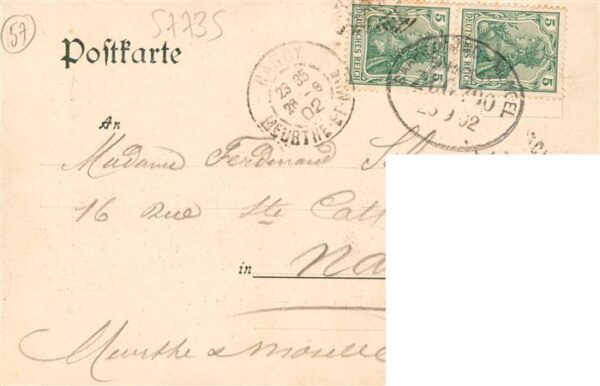 57
57735
Postkarte
5 DEUTSCHES REICH 5
5 DEUTSCHES REICH 5
NANCY
23 35
26 -9
02
MEURTHE ET M
ZUG
26 9 02
An
Madame Ferdinand
16 Rue Ste Cat
in Na
Meurthe & Moselle